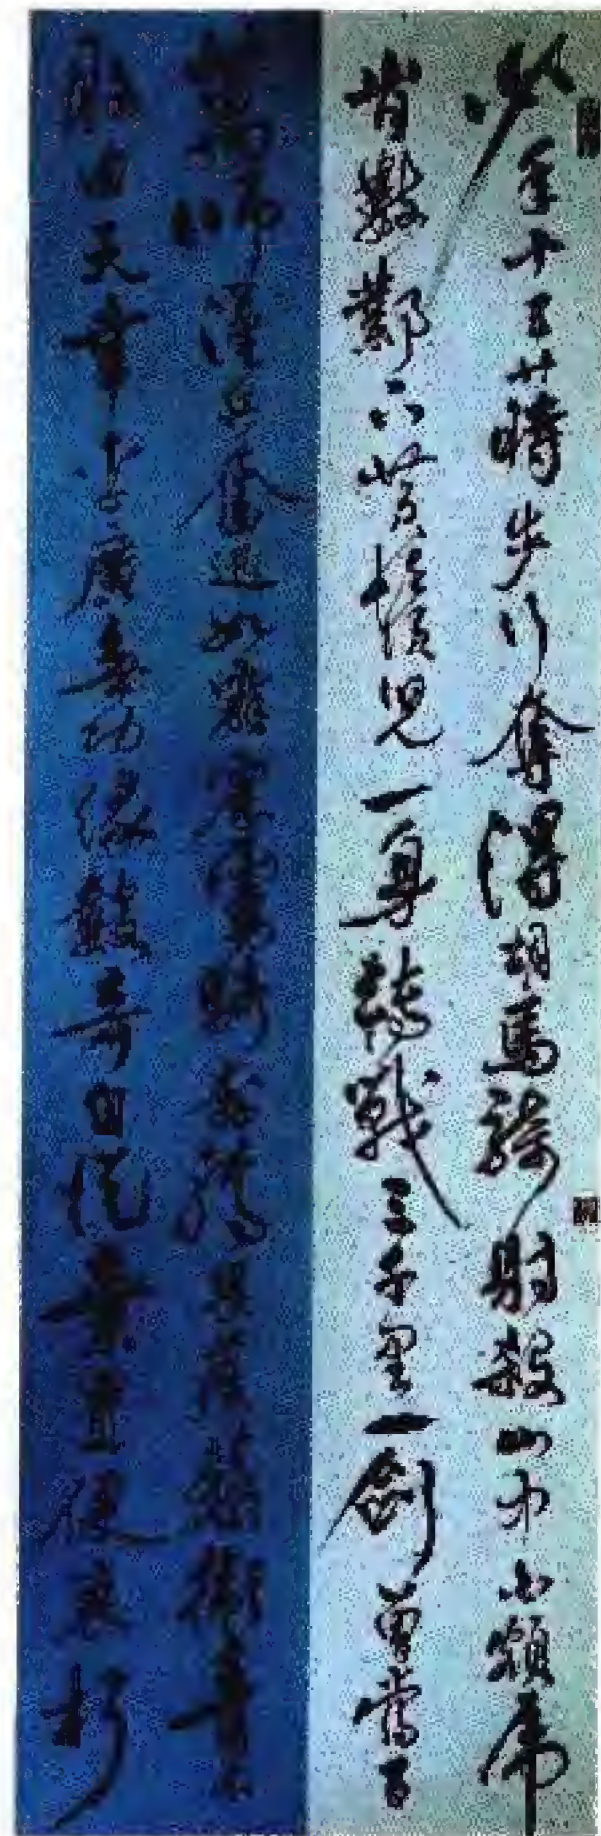 少年十五廿時步行奪得胡馬騎射殺山中白額虎
肯數鄴下黃鬚兒一身轉戰三千里一劍曾當百
萬師漢兵奮迅如霹靂虜騎崩騰畏蒺藜衛青不
敗由天幸李廣無功緣數奇自從棄置便衰朽